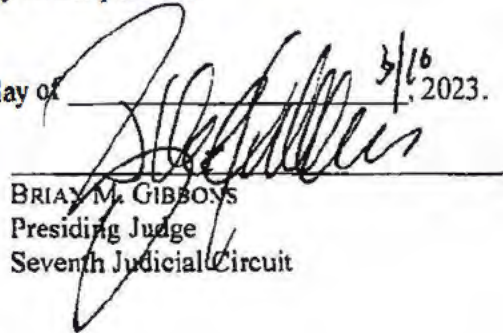 day of 3/16, 2023.
BRIAN M. GIBBONS
Presiding Judge
Seventh Judicial Circuit